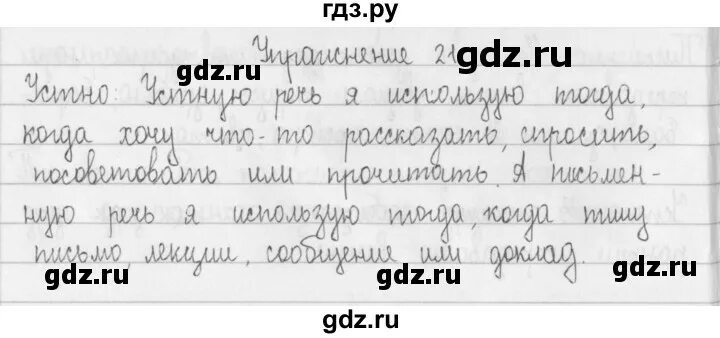 гдз.ру
Упражнение 21
gdz.ru gdz.ru
Устно: Устную речь я использую тогда,
когда хочу что-то рассказать, спросить,
gdz.ru
посоветовать или прочитать. А письмен-
ную речь я использую тогда, когда пишу
gdz.ru gdz.ru
письмо, лекции, сообщение или доклад.
gdz.ru gdz.ru
gdz.ru